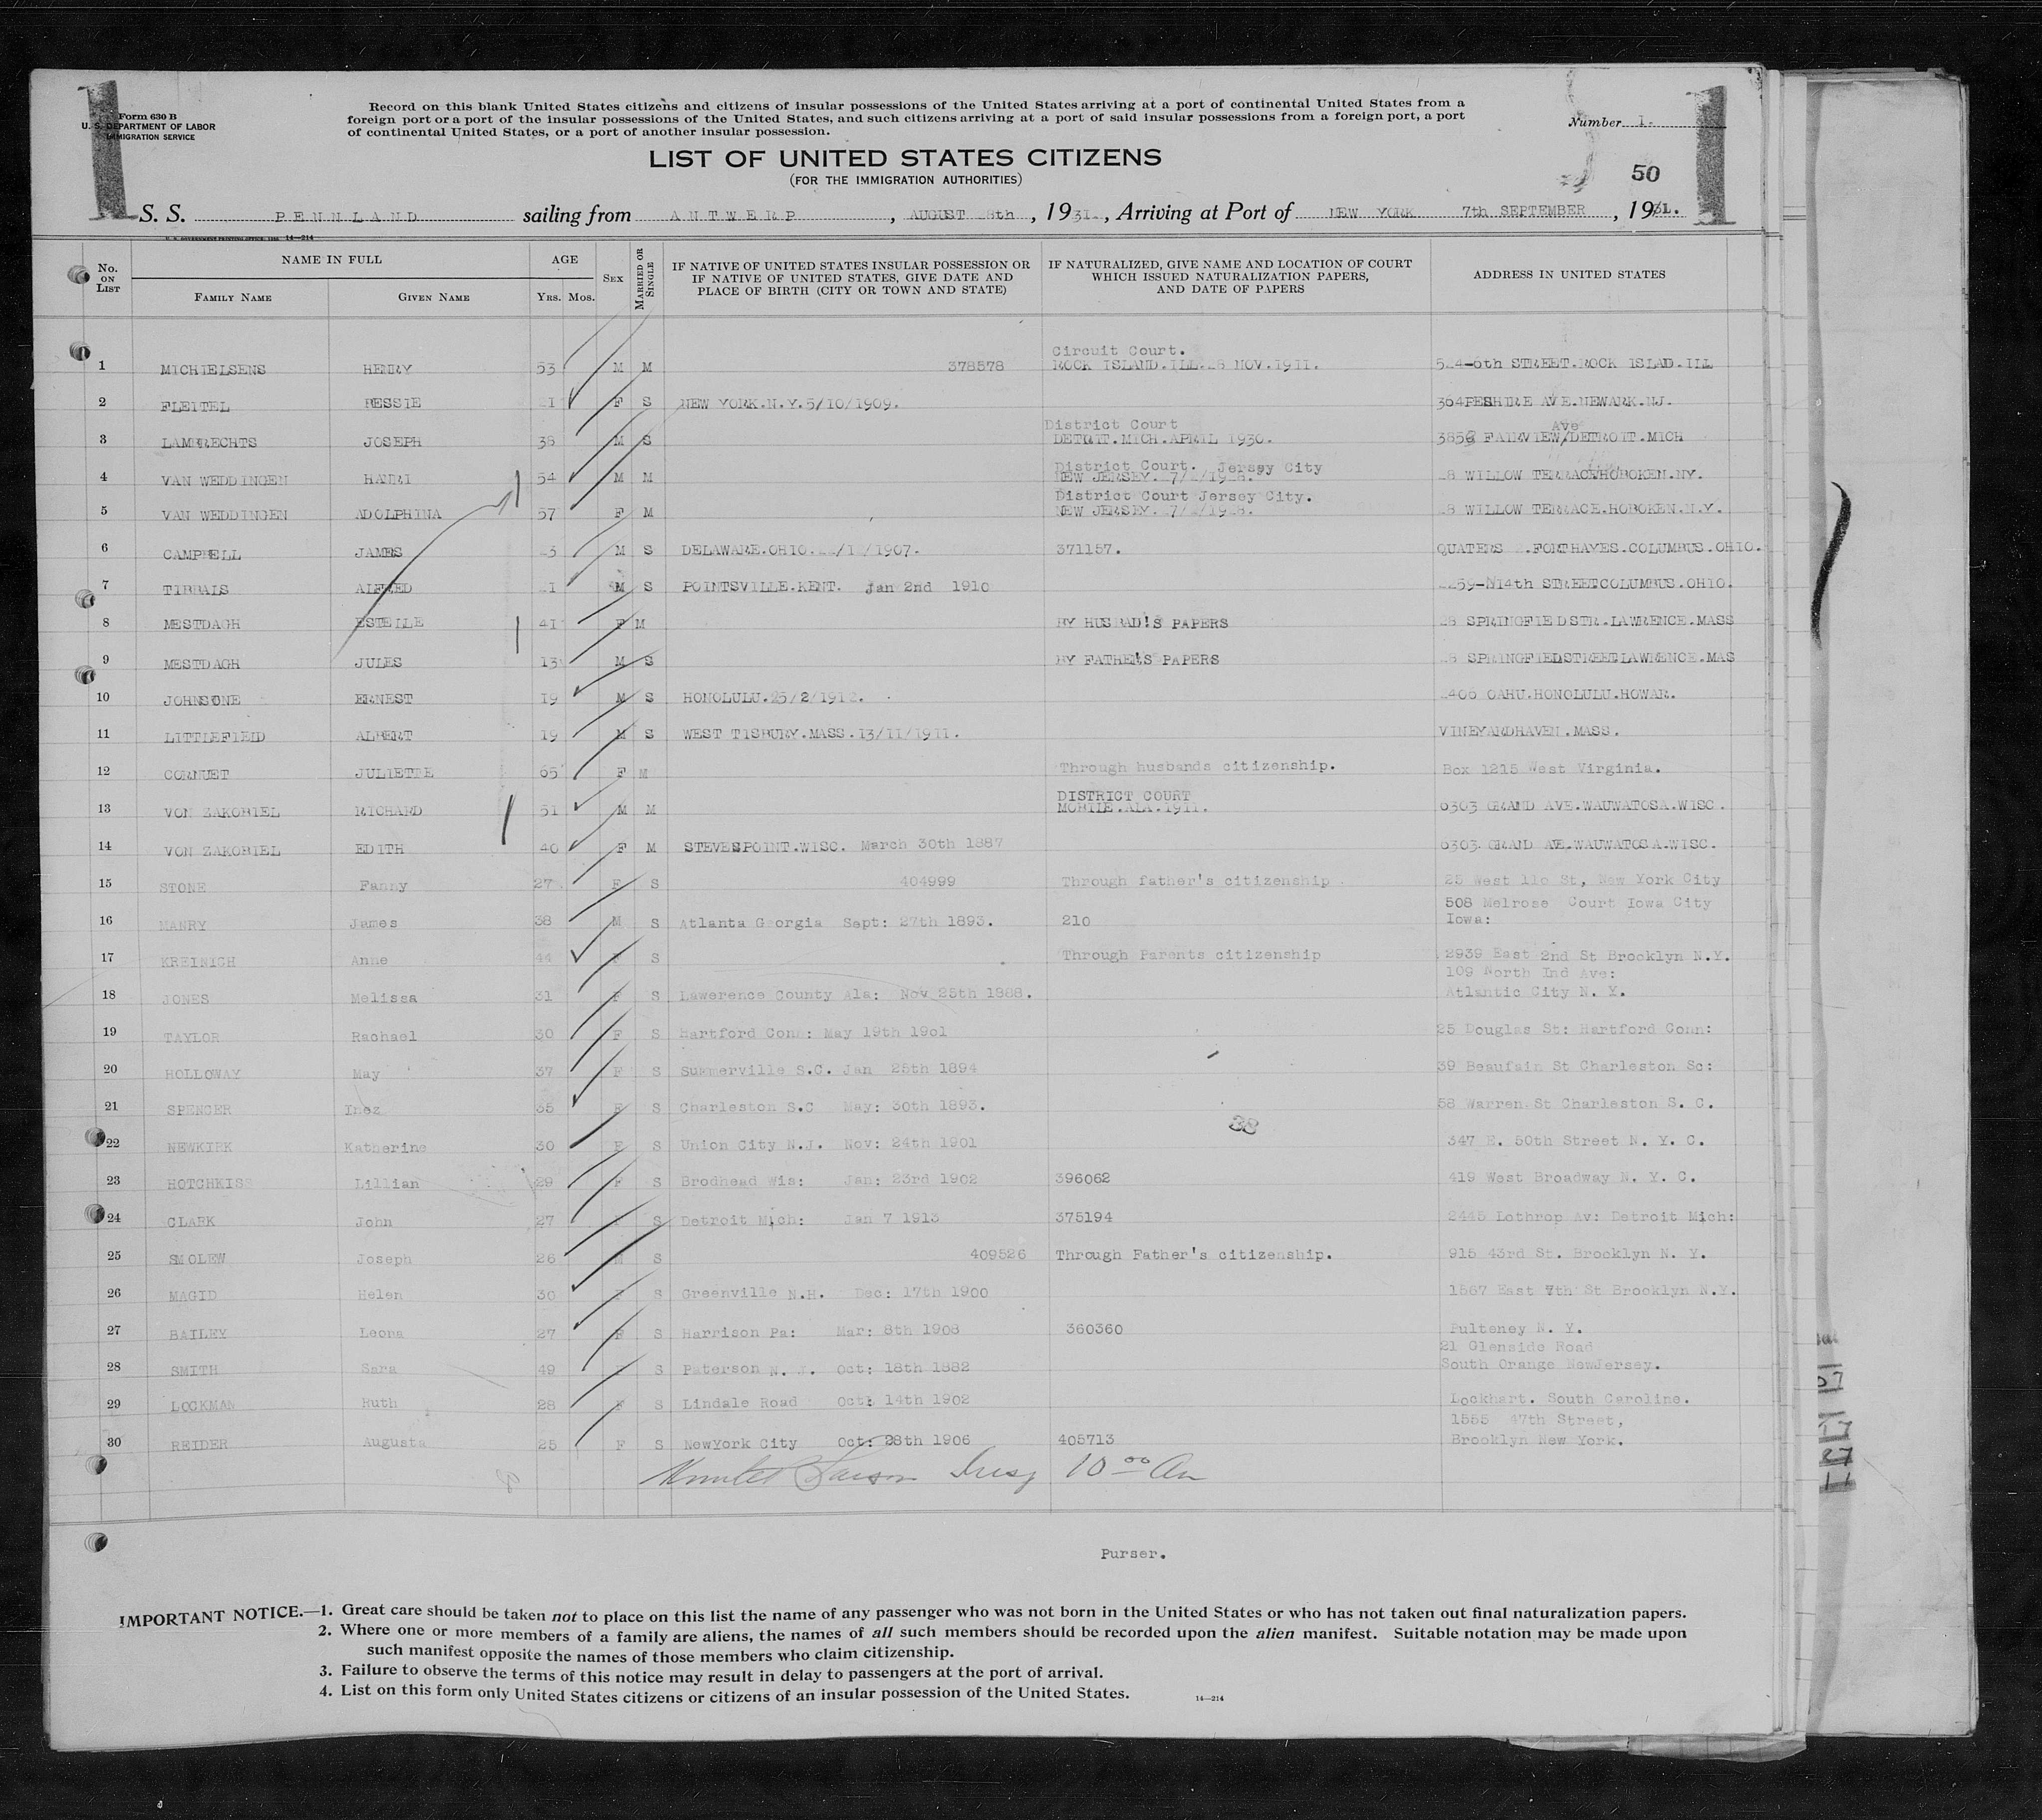 Form 630 B
U. S. DEPARTMENT OF LABOR
IMMIGRATION SERVICE
Record on this blank United States citizens and citizens of insular possessions of the United States arriving at a port of continental United States from a
foreign port or a port of the insular possessions of the United States, and such citizens arriving at a port of said insular possessions from a foreign port, a port
of continental United States, or a port of another insular possession.
Number 1.
LIST OF UNITED STATES CITIZENS
(FOR THE IMMIGRATION AUTHORITIES)
50
S. S. PENNLAND sailing from ANTWERP, AUGUST 28th, 1931., Arriving at Port of NEW YORK 7th SEPTEMBER, 1931.
14—214
No. ON LIST
NAME IN FULL
FAMILY NAME GIVEN NAME
AGE
YRS. MOS.
SEX
MARRIED OR SINGLE
IF NATIVE OF UNITED STATES INSULAR POSSESSION OR
IF NATIVE OF UNITED STATES, GIVE DATE AND
PLACE OF BIRTH (CITY OR TOWN AND STATE)
IF NATURALIZED, GIVE NAME AND LOCATION OF COURT
WHICH ISSUED NATURALIZATION PAPERS,
AND DATE OF PAPERS
ADDRESS IN UNITED STATES
Circuit Court.
1 MICHIELSENS HENRY 53 M M 378578 ROCK ISLAND.ILL.28 NOV.1911. 524-6th STREET.ROCK ISLAD.ILL
2 FLEITEL BESSIE 21 F S NEW YORK.N.Y.5/10/1909. 364 PESHIRE AVE.NEWARK.NJ.
District Court Ave
3 LAMBRECHTS JOSEPH 38 M S DETRIT.MICH.APRIL 1930. FAIRVIEW/DETROIT.MICH
District Court. Jersey City
4 VAN WEDDINGEN HANRI 54 M M NEW JERSEY. 28 WILLOW TERRACE.HOBOKEN.NY.
District Court Jersey City.
5 VAN WEDDINGEN ADOLPHINA 57 F M NEW JERSEY. 28 WILLOW TERRACE.HOBOKEN.N.Y.
6 CAMPBELL JAMES 23 M S DELAWARE.OHIO. 371157. QUATERS .FORTHAYES.COLUMBUS.OHIO.
7 TIBBALS ALFRED 21 M S POINTSVILLE.KENT. Jan 2nd 1910 STREET COLUMBUS.OHIO.
8 MESTDAGH ESTELLE 41 F M BY HUSBAD'S PAPERS 28 SPRINGFIED STR.LAWRENCE.MASS
9 MESTDAGH JULES 13 M S BY FATHER'S PAPERS 28 SPRINGFIEDSTREET LAWRENCE.MAS
10 JOHNSONE ERNEST 19 M S HONOLULU.25/2/1912. 2406 OAHU.HONOLULU.HOWAR.
11 LITTLEFIELD ALBERT 19 M S WEST TISBURY.MASS.13/11/1911. VINEYARDHAVEN.MASS.
12 CORNUET JULIETTE 65 F M Through husbands citizenship. Box 1215 West Virginia.
DISTRICT COURT
13 VON ZAKOBIEL RICHARD 51 M M MOBILE.ALA.1911. 6303 GRAND AVE.WAUWATOSA.WISC.
14 VON ZAKOBIEL EDITH 40 F M STEVESPOINT.WISC. March 30th 1887 6303 GRAND AVE.WAUWATOSA.WISC.
15 STONE Fanny 27 F S 404999 Through father's citizenship. 25 West 110 St, New York City
508 Melrose Court Iowa City
16 MANRY James 38 M S Atlanta Georgia Sept: 27th 1893. 210 Iowa:
17 KREINICH Anne 44 F S Through Parents citizenship 2939 East 2nd St Brooklyn N.Y.
109 North Ind Ave:
18 JONES Melissa 31 F S Lawerence County Ala: Nov 25th 1888. Atlantic City N. Y.
19 TAYLOR Rachael 30 F S Hartford Conn: May 19th 1901 25 Douglas St: Hartford Conn:
20 HOLLOWAY May 37 F S Summerville S.C. Jan 25th 1894 39 Beaufain St Charleston Sc:
21 SPENCER Inez 35 F S Charleston S.C May: 30th 1893. 58 Warren St Charleston S. C.
38
22 NEWKIRK Katherine 30 F S Union City N.J. Nov: 24th 1901 347 E. 50th Street N. Y. C.
23 HOTCHKISS Lillian 29 F S Brodhead Wis: Jan: 23rd 1902 396062 419 West Broadway N. Y. C.
24 CLARK John 27 S Detroit Mich: Jan 7 1913 375194 2445 Lothrop Av: Detroit Mich:
25 SMOLEW Joseph 26 M S 409526 Through Father's citizenship. 915 43rd St. Brooklyn N. Y.
26 MAGID Helen 30 F S Greenville N.H. Dec: 17th 1900 1567 East 7th St Brooklyn N.Y.
27 BAILEY Leona 27 F S Harrison Pa: Mar: 8th 1908 360360 Pulteney N. Y.
21 Glenside Road
28 SMITH Sara 49 F S Paterson N. J. Oct: 18th 1882 South Orange NewJersey.
29 LOCKMAN Ruth 28 F S Lindale Road Oct: 14th 1902 Lockhart. South Caroline.
1555 47th Street,
30 REIDER Augusta 25 F S NewYork City Oct: 28th 1906 405713 Brooklyn New York.
10 00 Am
Purser.
IMPORTANT NOTICE.—1. Great care should be taken not to place on this list the name of any passenger who was not born in the United States or who has not taken out final naturalization papers.
2. Where one or more members of a family are aliens, the names of all such members should be recorded upon the alien manifest. Suitable notation may be made upon
such manifest opposite the names of those members who claim citizenship.
3. Failure to observe the terms of this notice may result in delay to passengers at the port of arrival.
4. List on this form only United States citizens or citizens of an insular possession of the United States.
14—214